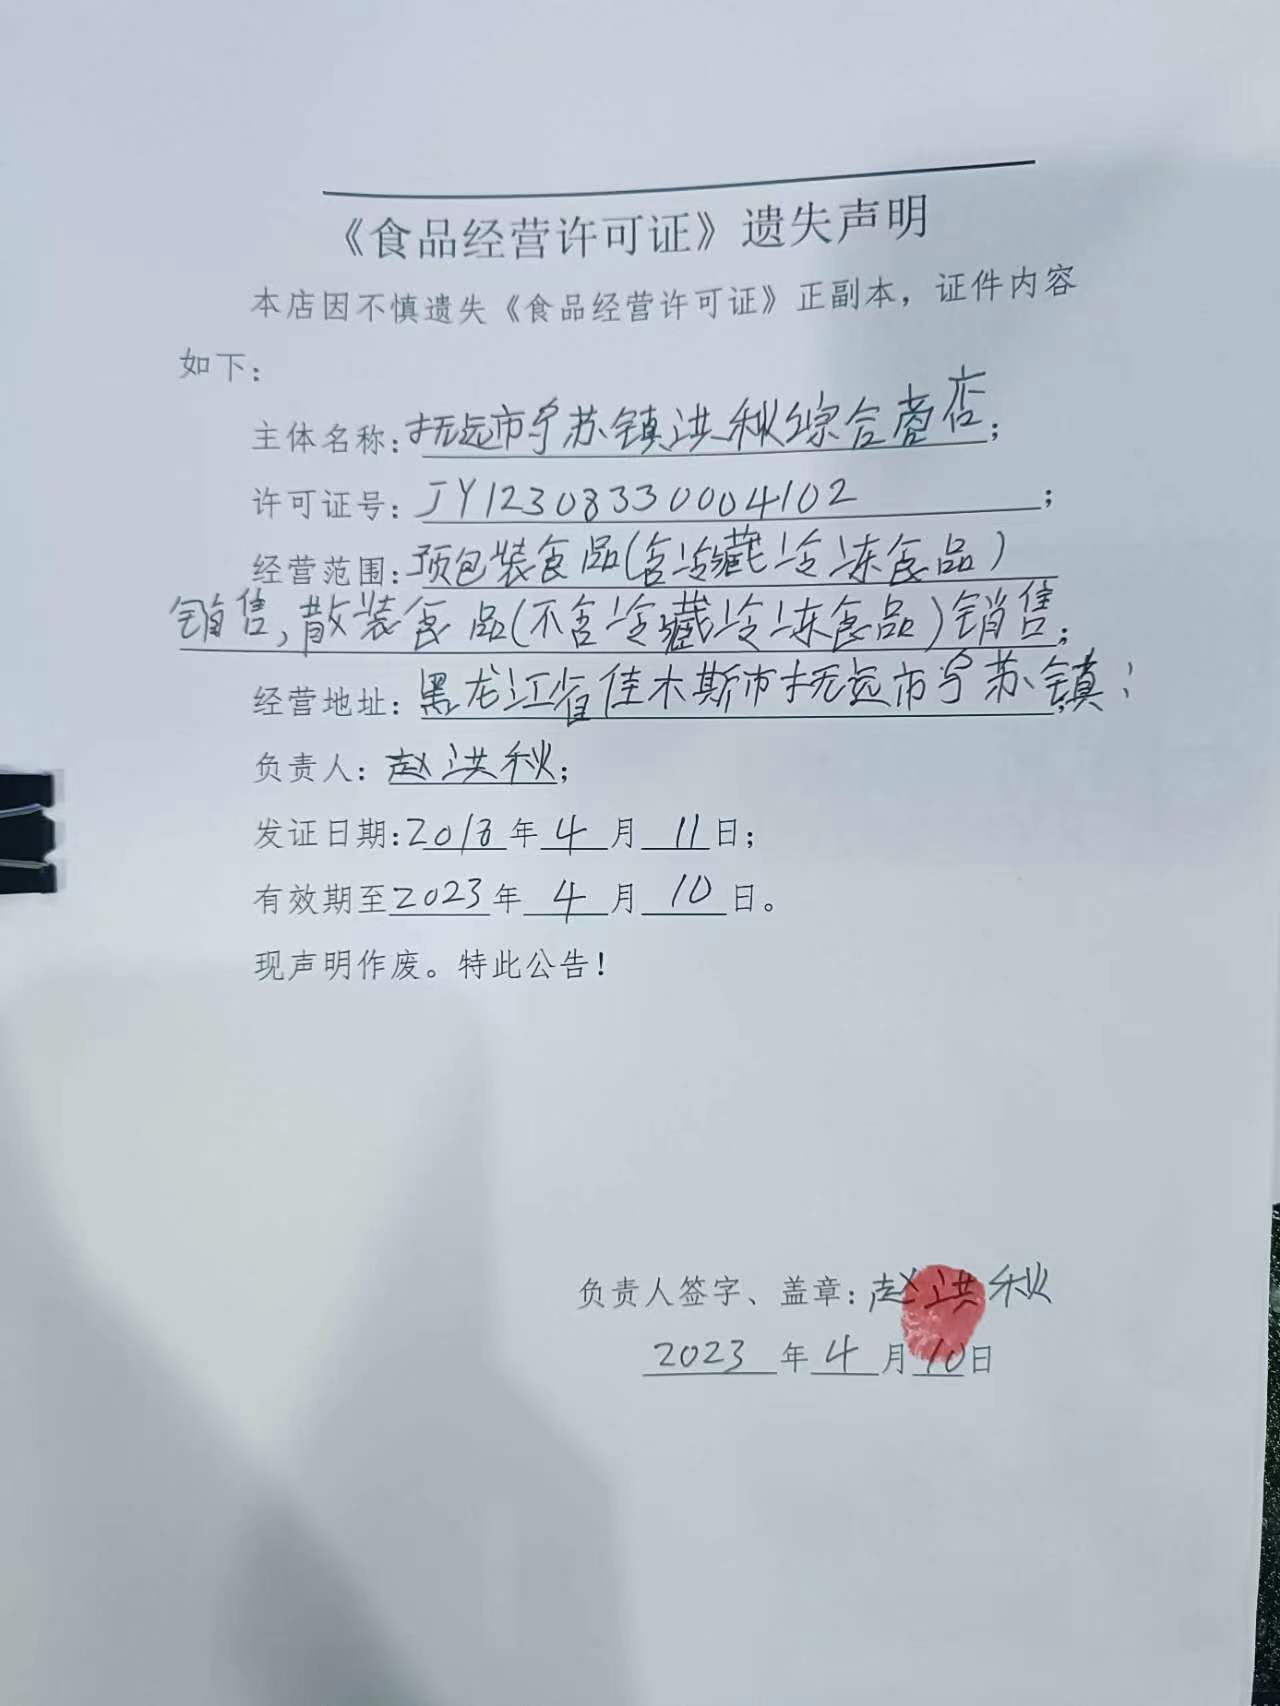 《食品经营许可证》遗失声明
本店因不慎遗失《食品经营许可证》正副本，证件内容
如下：
主体名称：抚远市宁苏镇洪秋综合商店；
许可证号：JY12308330004102；
经营范围：预包装食品(含冷藏冷冻食品)
销售，散装食品(不含冷藏冷冻食品)销售；
经营地址：黑龙江省佳木斯市抚远市宁苏镇；
负责人：赵洪秋；
发证日期：2018年4月11日；
有效期至2023年4月10日。
现声明作废。特此公告！
负责人签字、盖章：赵洪秋
2023年4月10日